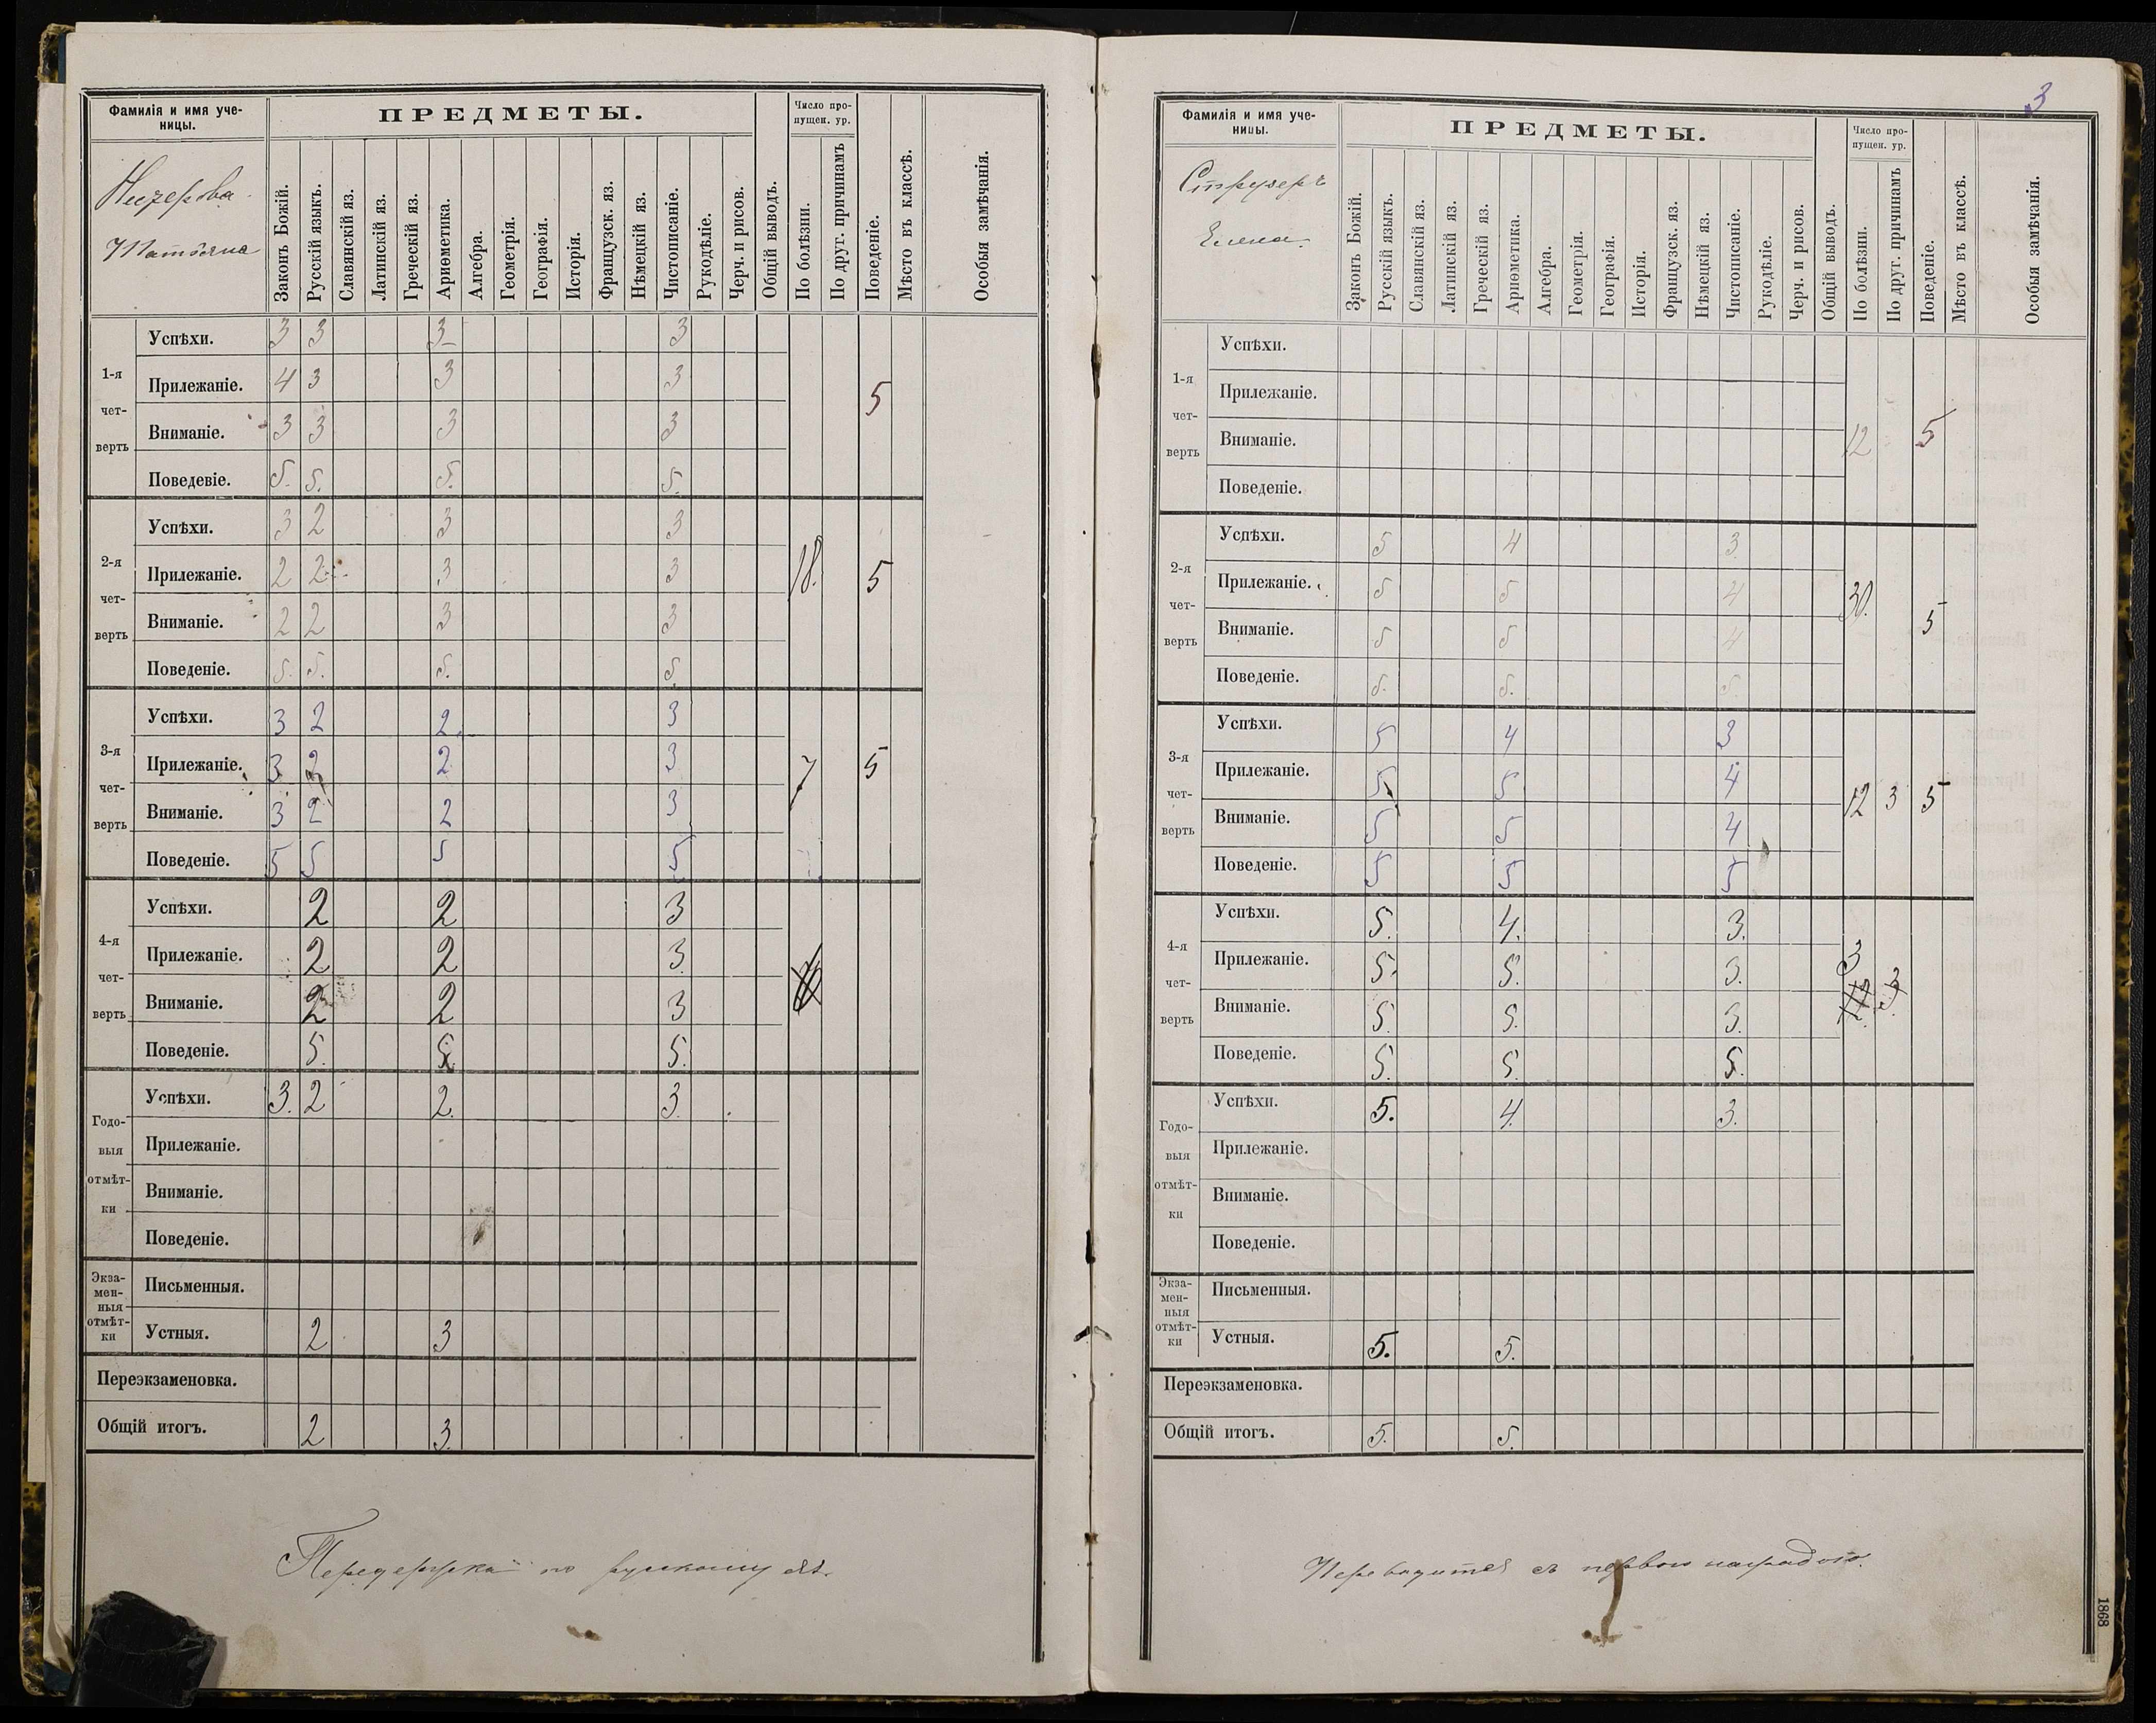 Фамилія и имя уче-
ницы.
ПРЕДМЕТЫ.
Число про-
пущен. ур.
Татьяна
Законъ Божій.
Русскій языкъ.
Славянскій яз.
Латинскій яз.
Греческій яз.
Ариѳметика.
Алгебра.
Геометрія.
Географія.
Исторія.
Французск. яз.
Нѣмецкій яз.
Чистописаніе.
Рукодѣліе.
Черч. и рисов.
Общій выводъ.
По болѣзни.
По друг. причинамъ
Поведеніе.
Мѣсто въ классѣ.
Особыя замѣчанія.
1-я чет- верть
Успѣхи. 3 3 3 3
Прилежаніе. 4 3 3 3 5
Вниманіе. 3 3 3 3
Поведевіе. 5. 5. 5. 5.
2-я чет- верть
Успѣхи. 3 2 3 3
Прилежаніе. 2 2 3 3 18. 5
Вниманіе. 2 2 3 3
Поведеніе. 5. 5. 5. 5.
3-я чет- верть
Успѣхи. 3 2 2 3
Прилежаніе. 3 2 2 3 7 5
Вниманіе. 3 2 2 3
Поведеніе. 5 5 5 5
4-я чет- верть
Успѣхи. 2 2 3
Прилежаніе. 2 2 3
Вниманіе. 2 2 3
Поведеніе. 5. 5. 5.
Годо- выя отмѣт- ки
Успѣхи. 3. 2 2. 3.
Прилежаніе.
Вниманіе.
Поведеніе.
Экза- мен- ныя отмѣт- ки
Письменныя.
Устныя. 2 3
Переэкзаменовка.
Общій итогъ. 2 3.
Передержка по русскому яз.
3
Фамилія и имя уче-
ницы.
ПРЕДМЕТЫ.
Число про-
пущен. ур.
Струзеръ
Елена.
Законъ Божій.
Русскій языкъ.
Славянскій яз.
Латинскій яз.
Греческій яз.
Ариѳметика.
Алгебра.
Геометрія.
Географія.
Исторія.
Французск. яз.
Нѣмецкій яз.
Чистописаніе.
Рукодѣліе.
Черч. и рисов.
Общій выводъ.
По болѣзни.
По друг. причинамъ
Поведеніе.
Мѣсто въ классѣ.
Особыя замѣчанія.
1-я чет- верть
Успѣхи.
Прилежаніе.
Вниманіе. 12 5
Поведеніе.
2-я чет- верть
Успѣхи. 5 4 3
Прилежаніе. 5 5 4 30.
Вниманіе. 5 5 4 5
Поведеніе. 5. 5. 5.
3-я чет- верть
Успѣхи. 5 4 3
Прилежаніе. 5 5 4 12 3 5
Вниманіе. 5 5 4
Поведеніе. 5 5 5
4-я чет- верть
Успѣхи. 5. 4. 3.
Прилежаніе. 5. 5. 3. 3
Вниманіе. 5. 5. 3. 12 3
Поведеніе. 5. 5. 5.
Годо- выя отмѣт- ки
Успѣхи. 5. 4. 3.
Прилежаніе.
Вниманіе.
Поведеніе.
Экза- мен- ныя отмѣт- ки
Письменныя.
Устныя. 5. 5.
Переэкзаменовка.
Общій итогъ. 5. 5.
Переводится съ первою наградою.
1868